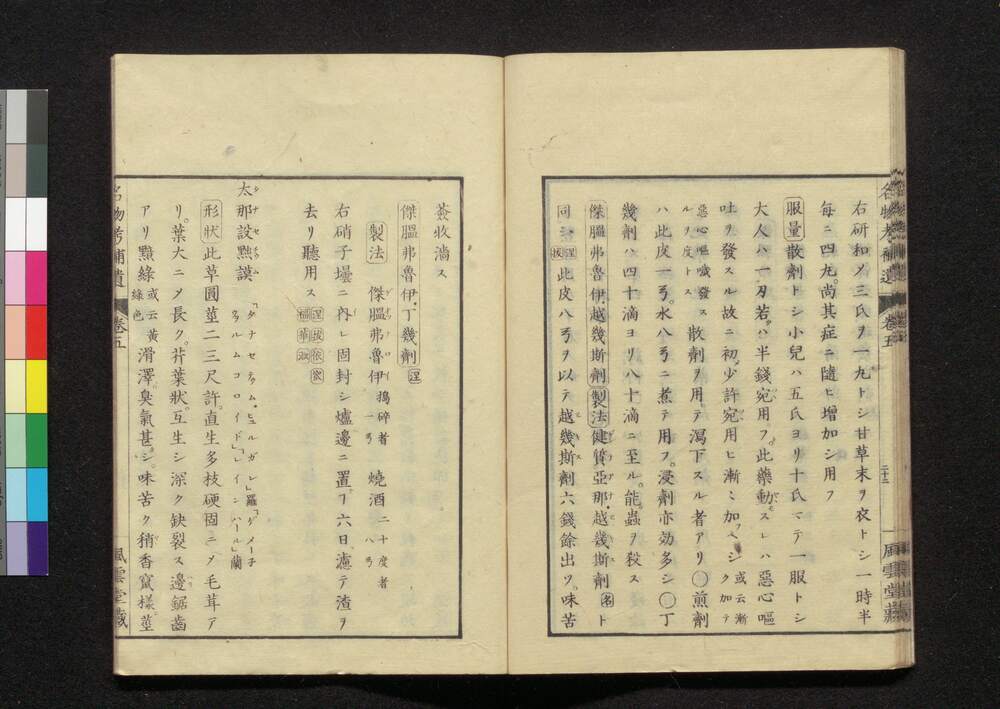 名物考補遺 卷五 二十三 風雲堂藏
右研和メ三氏ヲ一丸トシ甘草末ヲ衣トシ一時半
每ニ四丸尚其症ニ隨ヒ增加シ用フ
服量散劑トシ小兒ハ五氏ヨリ十氏マテ一服トシ
大人ハ一刃若クハ半錢宛用フ此藥動スレハ惡心嘔
吐ヲ發スル故ニ初メ少許宛用ヒ漸々加フヘシ或云漸ク加テ
惡心嘔噦發ルヲ度トス散劑ヲ用テ瀉下スル者アリ〇煎劑
ハ此皮一弓水八弓ニ煮テ用フ浸劑亦効多シ〇丁
幾劑ハ四十滴ヨリ八十滴ニ至ル能蟲ヲ殺ス
傑膃弗魯伊越幾斯劑製法健質亞那越幾斯劑名ト
同シ涅拔此皮八弓ヲ以テ越幾斯劑六錢餘出ツ味苦
蘞收濇ス
傑膃弗魯伊丁幾劑涅
製法 傑膃弗魯伊搗碎者一弓 燒酒二十度者二八弓
右硝子壜ニ內レ固封シ爐邊ニ置コ六日濾テ渣ヲ
去リ聽用ス
太那設㸃謨「タナセチュム・ヒュルガレ」羅「ダメーチ
形狀此草圓莖二三尺許直生多枝硬固ニメ毛茸ア
リ葉大ニメ長ク芥葉狀互生シ深ク缺裂ス邊鋸齒
アリ黯綠或云黃綠色滑澤臭氣甚シ味苦ク稍香竄樣莖
名物考補遺 卷五 風雲堂藏